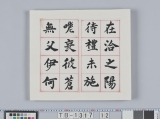 在洽之陽
待禮未施
哀彼蒼
無父伊何
TB-1317 12